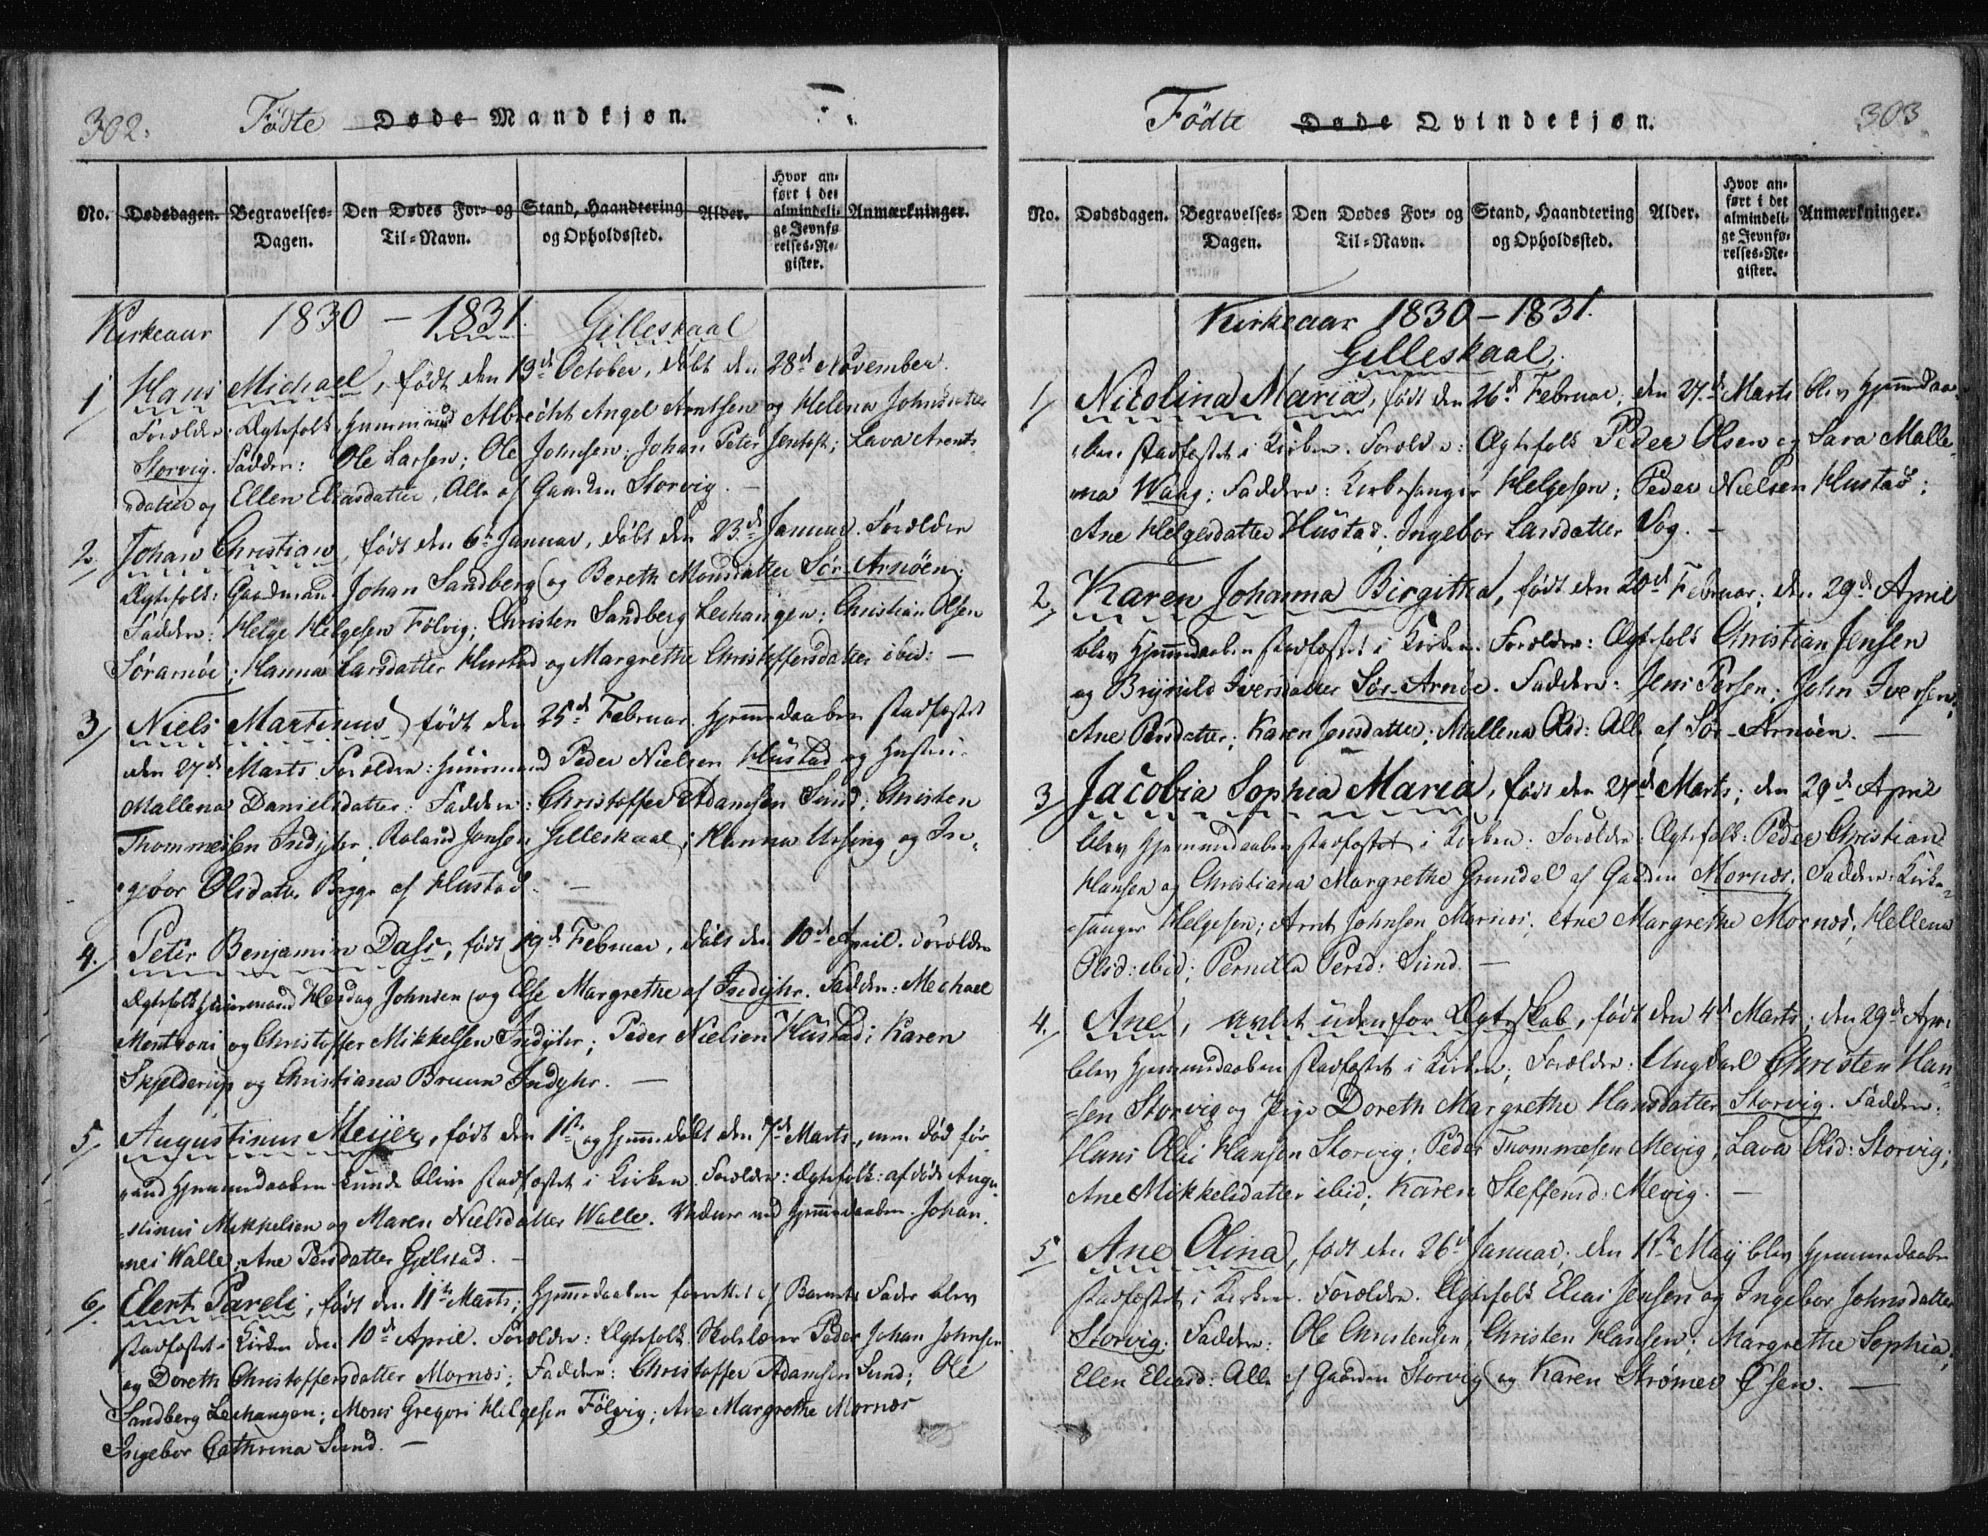 302.
Födte Døde Mandkjøn.
No. Dødsdagen. Begravelses-Dagen. Den Dødes For- og Til-Navn. Stand, Haandtering og Opholdssted. Alder. Hvor anført i det almindelige Jevnførelses-Register. Anmærkninger.
Kirkeaar 1830 - 1831. Gilleskaal
1 Hans Michael, født den 19de October, døbt den 28de November.
Forældre: Ægtefolk, Huusmand Albrecht Angel Arntsen og Helena Johnsdatter
Storvig. Faddere: Ole Larsen; Ole Johnsen; Johan Peter Jentoft; Lava Arents-
datter og Ellen Eliasdatter, Alle af Gaarden Storvig. -
2, Johan Christian, født den 6te Januar, døbt den 23de Januar. Forældre
Ægtefolk: Gaardmand Johan Sandberg og Bereth Monsdatter Sör-Arnöen.
Faddere: Helge Helgesen Fölvig; Christen Sandberg Lechangen; Christian Olsen
Söramöe; Hanna Larsdatter Hustad og Margrethe Christoffersdatter ibid: -
3/ Niels Martinus, født den 25de Februar. Hjemmedaaben stadfæstet
den 27de Marts. Forældre: Huusmand Peder Nielsen Hustad og Hustru
Mallena Danielsdatter: Faddere: Christoffer Adamsen Sund; Christen
Thommesen Indyhr; Roland Jonsen Gilleskaal; Hanna Ursing og In-
gebor Olsdatter Bygge af Hustad. -
4./ Peter Benjamin Dass, født 19de Februar, døbt den 10de April. Forældre
Ægtefolk Huusmand Hersdag Johnsen og Else Margrethe af Indyhr. Faddere: Michael
Mentsoni og Christoffer Mikkelsen Indyhr; Peder Nielsen Hustad; Karen
Skjelderup og Christiana Bruun Indyhr. -
5. Augustinus Meijer, født den 1ste og Hjemmedøbt den 7de Marts, men død før-
end Hjemmedaaben kunde blive stadfæstet i Kirken. Forældre: Ægtefolk: afdøde Augu-
stinus Mikkelsen og Maren Nielsdatter Walle. Vidner ved Hjemmedaaben: Johan-
nes Walle; Ane Persdatter Gjelstad. -
6/. Elert Pareli, født den 11te Marts; Hjemmedaaben forrettet af Barnets Fader blev
stadfæstet i Kirken den 10de April. Forældre: Ægtefolk Skolelærer Peder Johan Johnsen
og Doreth Christoffersdatter Mornes; Faddere: Christoffer Adamsen Sund; Ole
Sandberg Lechangen; Mons Gregori Helgesen Fölvig; Ane Margrethe Mornes
Ingebor Cathrina Sund. -
303
Födte Døde Qvindekjøn.
No. Dødsdagen. Begravelses-Dagen. Den Dødes For- og Til-Navn. Stand, Haandtering og Opholdssted. Alder. Hvor anført i det almindelige Jevnførelses-Register. Anmærkninger.
Kirkeaar 1830 - 1831.
Gilleskaal.
1/ Nicolina Maria, født den 26de Februar, den 27de Marts blev Hjemmedaa-
ben stadfæstet i Kirken. Forældre: Ægtefolk Peder Olsen og Sara Malle-
na Waag; Faddere: Kirkesanger Helgesen; Peder Nielsen Hustad;
Ane Helgesdatter Hustad; Ingebor Larsdatter Vog. -
2, Karen Johanna Birgitha, født den 20de Februar; den 29de April
blev Hjemmedaaben stadfæstet i Kirken. Forældre: Ægtefolk Christian Jensen
og Brynild Iversdatter Sör-Arnöe. Faddere: Jens Persen; John Iversen;
Ane Persdatter; Karen Jensdatter; Mallena Olsd: Alle af Sör-Arnöen. -
3, Jacobia Sophia Maria, født den 27de Marts; den 29de April
blev Hjemmedaaben stadfæstet i Kirken. Forældre: Ægtefolk: Peder Christian
Hansen og Christiana Margrethe Grundal af Gaarden Mornes. Faddere: Kirke-
sanger Helgesen; Arnt Johnsen Mornes; Ane Margrethe Mornes; Hellena
Olsd: ibid; Pernilla Persd: Sund. -
4. Ane, avlet udenfor Ægteskab, født den 4de Marts; den 29de April
blev Hjemmedaaben stadfæstet i Kirken; Forældre: Ungkarl Christen Han-
sen Storvig og Pige Doreth Margrethe Hansdatter Storvig. Faddere:
Hans Olai Hansen Storvig; Peder Thommesen Mevig; Lava Olsd: Storvig;
Ane Mikkelsdatter ibid; Karen Steffensd: Mevig. -
5 Ane Olina, født den 26de Januar; den 11te Maij blev Hjemmedaaben
stadfæstet i Kirken. Forældre. Ægtefolk Elias Jensen og Ingebor Johnsdatter
Storvig; Faddere: Ole Christensen, Christen Hansen; Margrethe Sophia;
Elen Eliasd: Alle af Gaarden Storvig og Karen Strømer Øsen. -